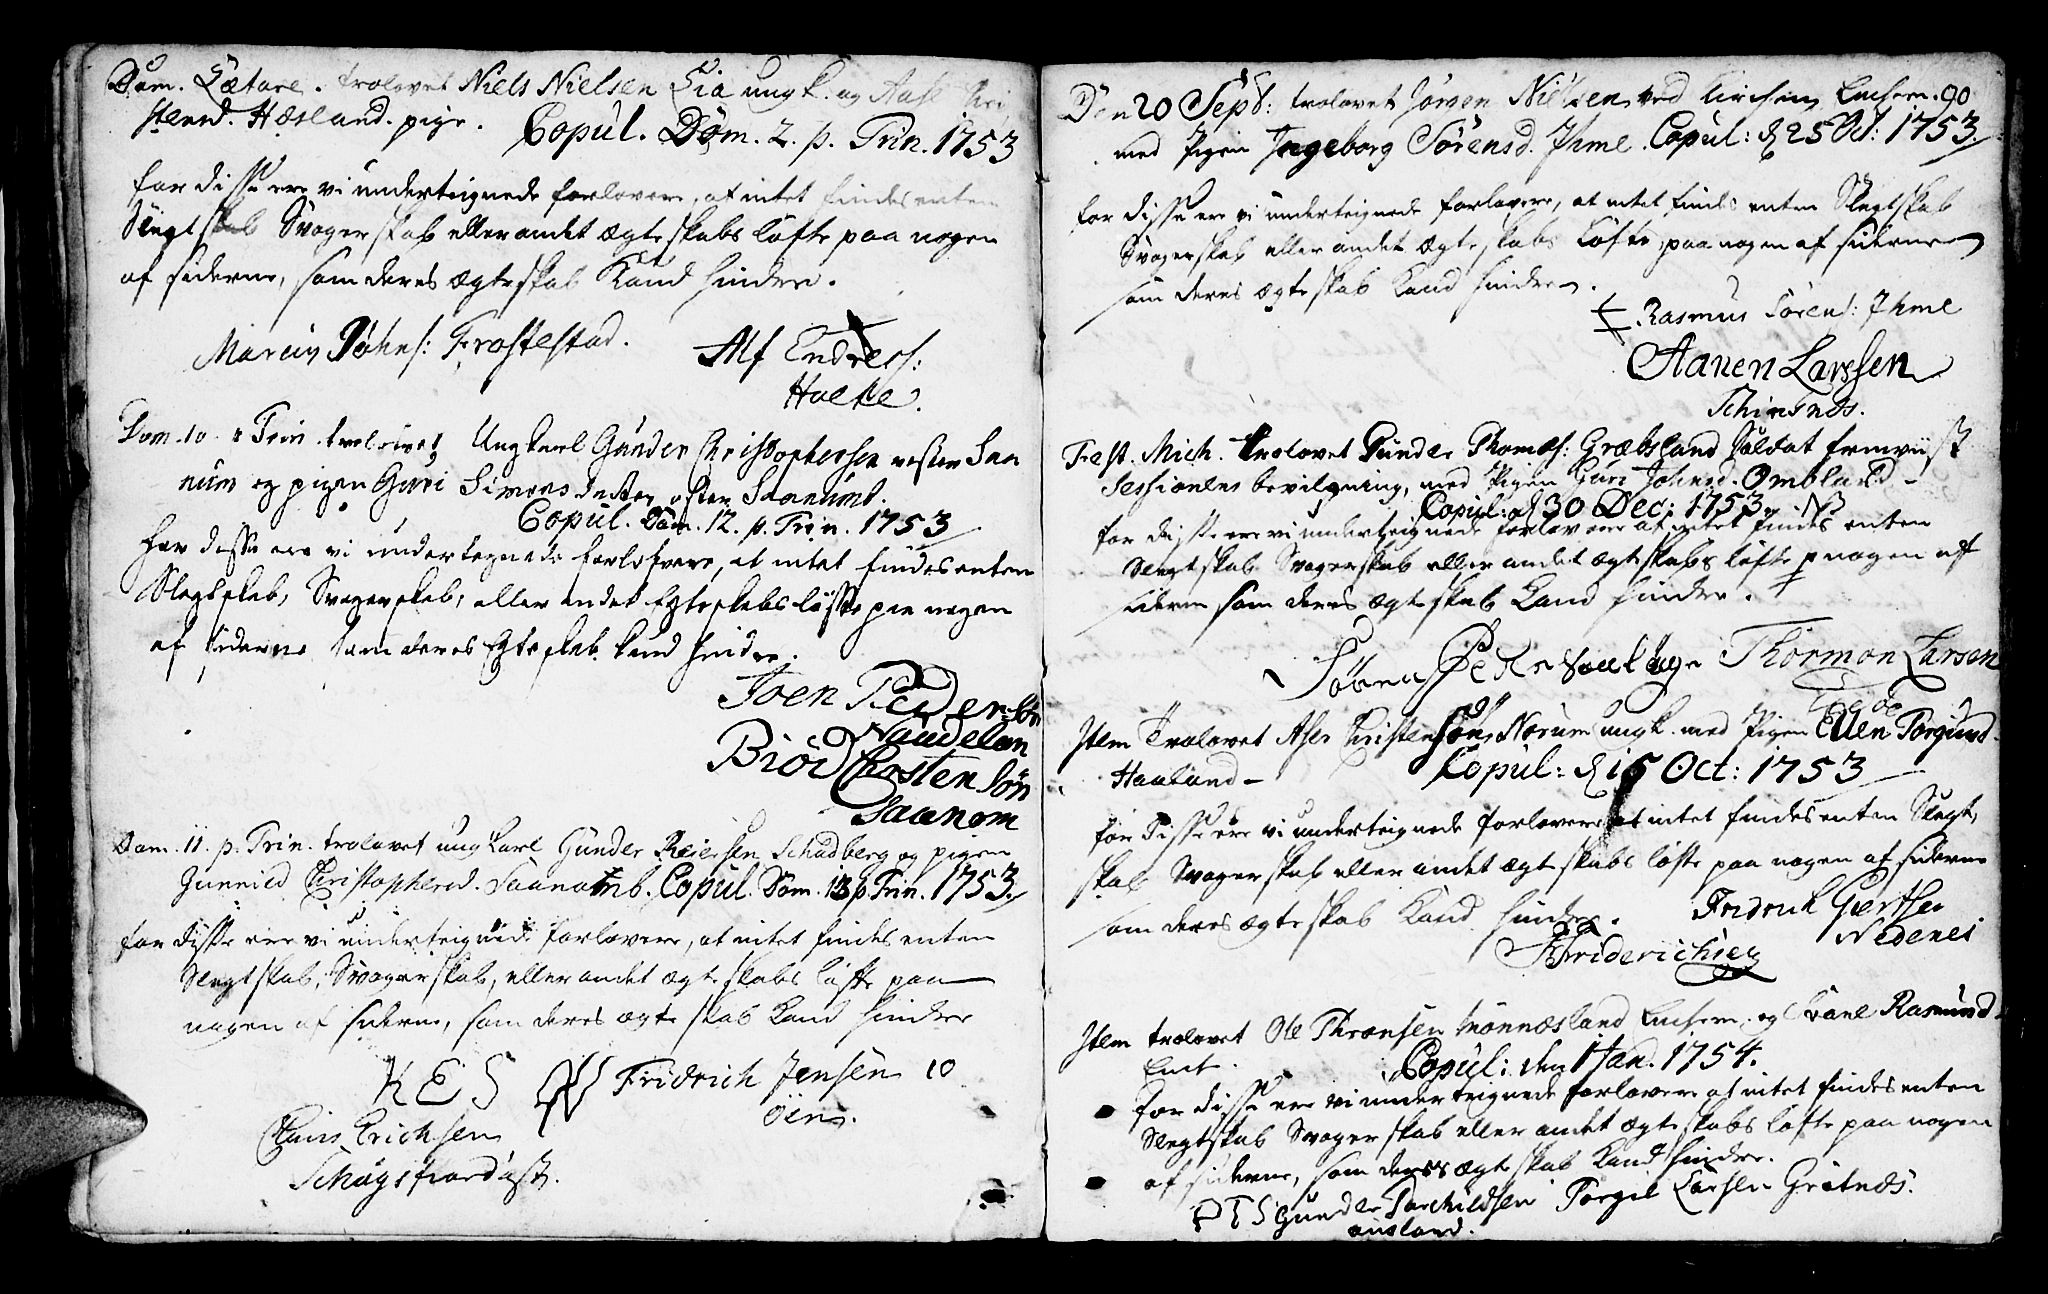 Dom. Lætare. trolovet Niels Nielsen Lia ungk. og Aase Chri
stensd. Hæsland. pige. Copul. Dom. 2. p. Trin. 1753
for disse ere vi underteignede forlovere, at intet findes enten
Slegtskab Svogerskab eller andet Ægteskabs løfte paa nogen
af siderne, som deres Ægteskab Kand hindre.
Marcus Johns: Frostestad. Alf Endress:
Holte.
Dom. 10. p Trin. trolovet Ungkarl Gunder Christophersen vester Saa
num og pigen Guri Simonsdatter øster Saanum.
Copul. Dom. 12. p. Trin. 1753
For disse ere vi undertegnede forlofvere, at intet findes enten
Slegtskab, Svogerskab, eller andet Egteskabs løfte paa nogen
af siderne som deres Egteskab kand hindre.
Joen Peder søn
Naudelan
Briød Chrsten Søn
Saanom
Dom. 11. p. Trin. trolovet ungkarl Gunder Reiersen Schadberg og pigen
Gunnild Christophersd. Saanum. Copul. Dom. 13 p Trin. 1753
for disse ere vi underteignede forlovere, at intet findes enten
Slegtskab, Svogerskab, eller andet Ægteskabs løfte paa
nogen af siderne, som deres ægteskab Kand hindre
H E S Fridrich Jensen 10
Erichsen Øen.
90
Den 20 Sept: trolovet Jørgen Nielsen ved Kirchen
med Pigen Ingeborg Sørensd. Ihme. Copul: d 25 Oct: 1753
for disse ere vi underteignede forlovere, at intet findes enten Slegtskab
Svogerskab eller andet Ægteskabs Løfte, paa nogen af siderne
som deres Ægteskab Kand hindre.
Rasmus Sørens: Ihme
Aanen Larssen
Fest. Mich. Trolovet Gunder Thomæs: Græbsland Soldat fremviist
Sessionens bevilgning, med Pigen Guri Johnsd. Ombland
Copul: d 30 Dec: 1753
for disse ere vi underteignede forlovere at intet findes enten
Slegtskab Svogerskab eller andet ægteskabs løfte p nogen aff
siderne som deres Ægteskab Kand hindre.
Thormon Larsen
Item Trolovet Christensøn Norum ungk. med Pigen Ellen Torgiusd.
Haaland
Copul: d 15 Oct: 1753
for Disse ere vi underteignede forlovere at intet findes enten Slegt,
skab Svogerskab eller andet ægteskabs løfte paa nogen af siderne
som deres ægteskab Kand hindre. Fridrich Giertsen
Nedenes
Item trolovet Ole Thronsen og Rasmusd.
Copul: den 1 Jan. 1754.
for disse ere vi underteignede forlovere at intet findes enten
Slegtskab Svogerskab eller andet Ægteskabs løfte paa nogen
af siderne, som deres ægteskab Kand hindre.
Gunder Torchildsen Torgil Larsen